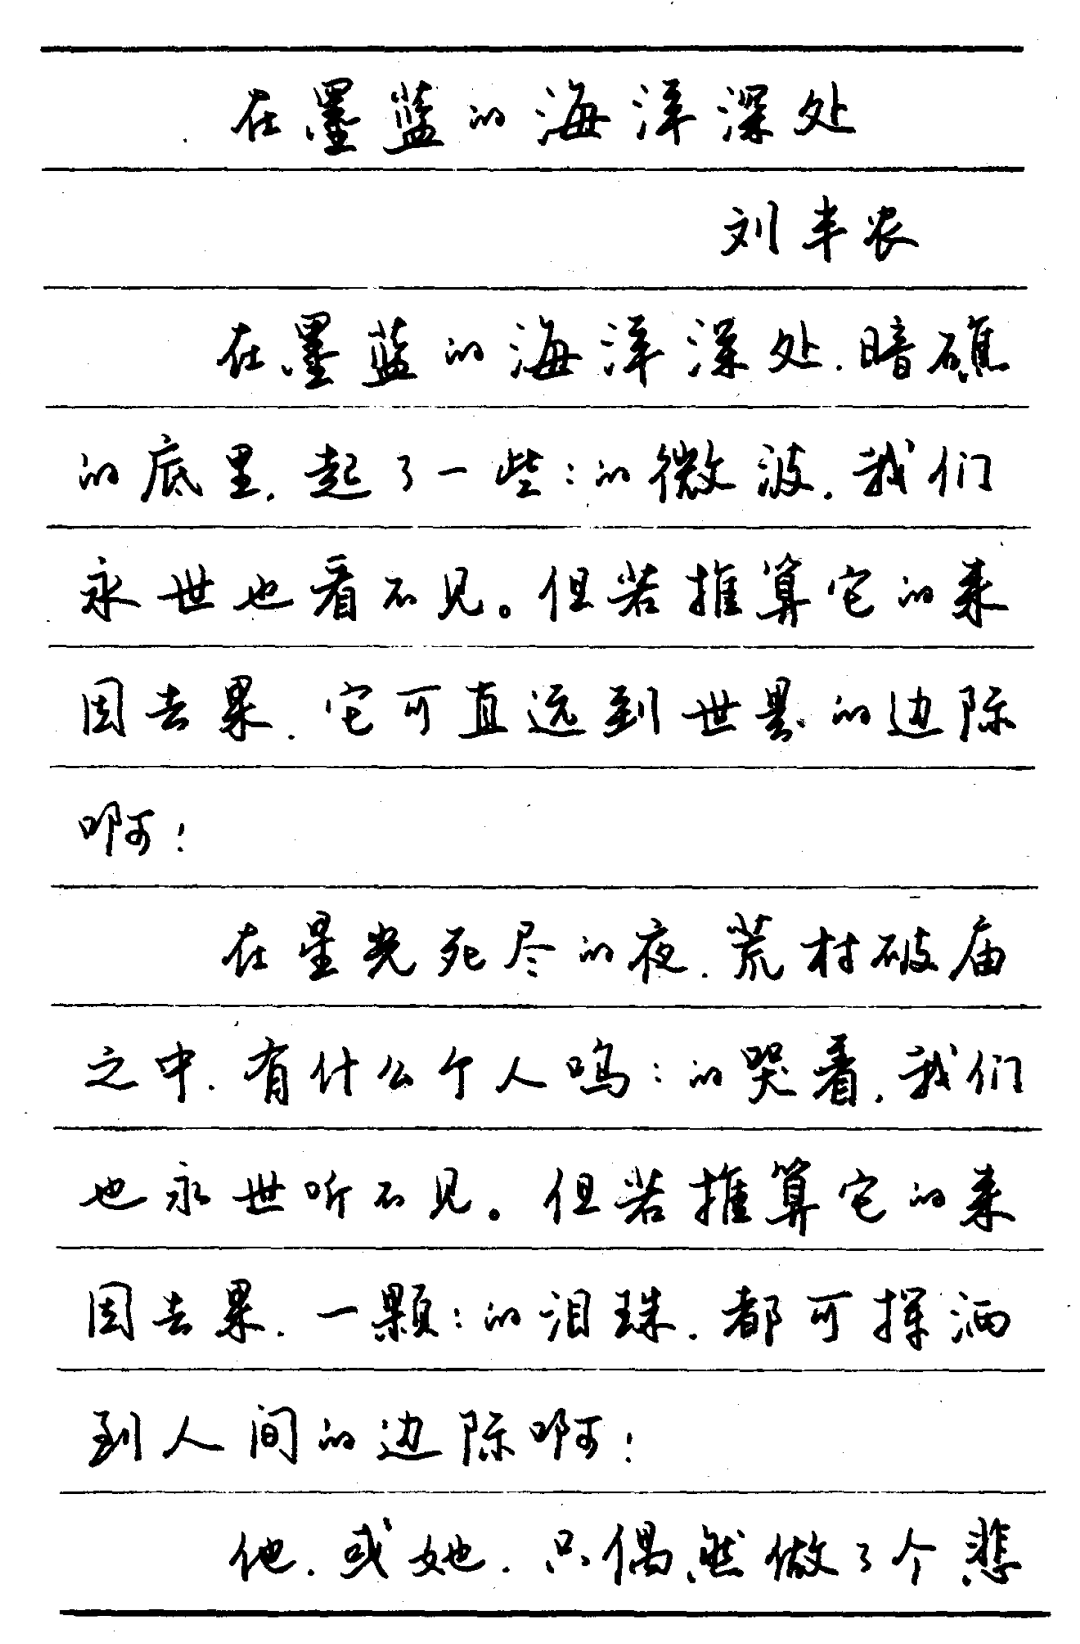 在墨蓝的海洋深处
刘半农
在墨蓝的海洋深处，暗礁
的底里，起了一些：的微波，我们
永世也看不见。但若推算它的来
因去果，它可直远到世界的边际
啊！
在星光死尽的夜，荒村破庙
之中，有什么个人呜：的哭着，我们
也永世听不见。但若推算它的来
因去果，一颗：的泪珠，都可挥洒
到人间的边际啊！
他，或她，只偶然做了个悲